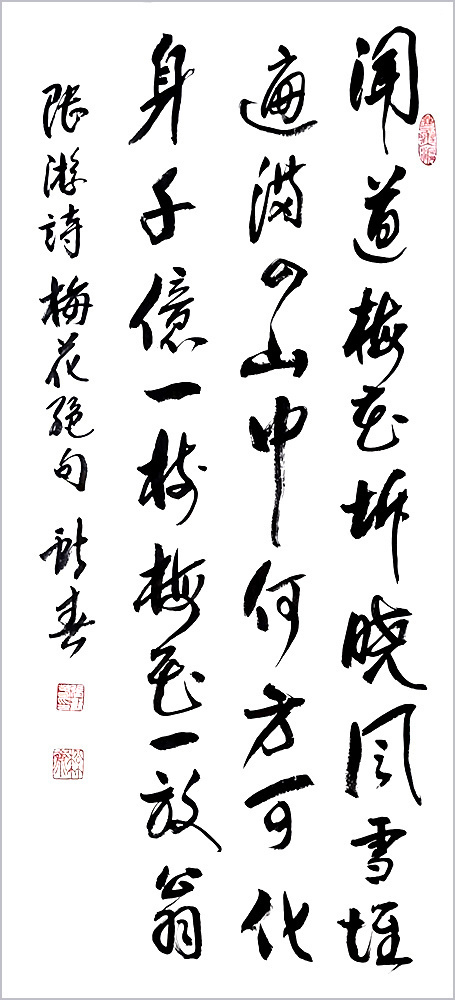 闻道梅花坼晓风雪堆
遍满四山中何方可化
身千億一树梅花一放翁
陆游詩梅花绝句 春